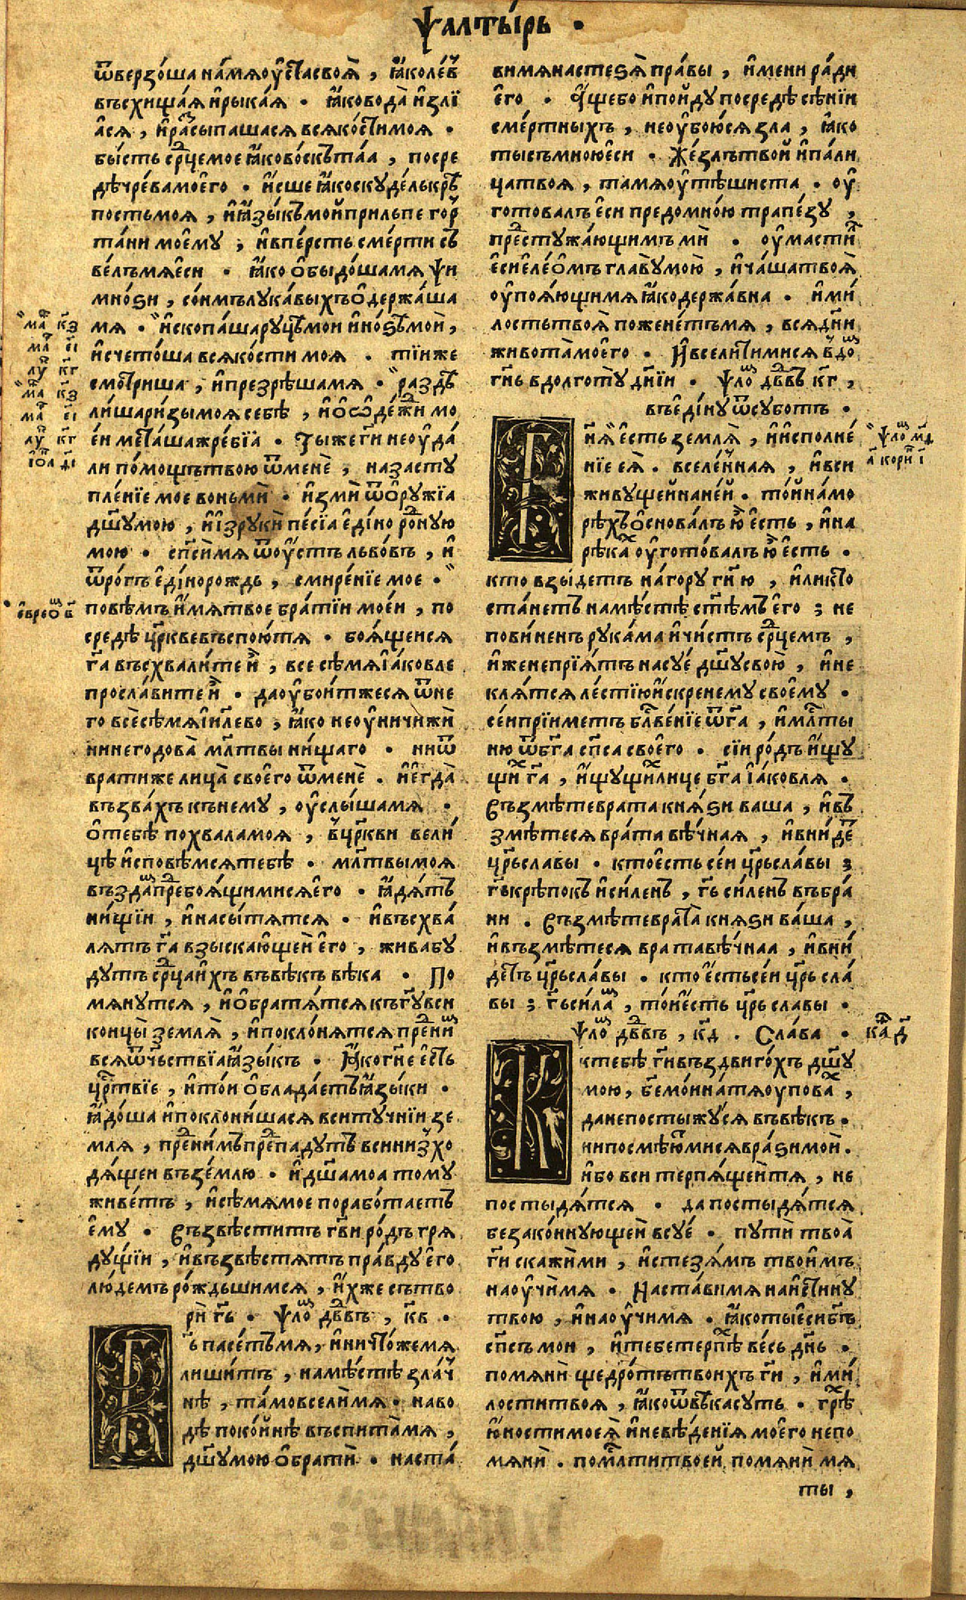 Ѱалты́рь ·
ѿверзо́ша на́мѧ оу҆ста своѧ̀ , ꙗ҆́ко ле́въ
въсхища́ѧ и҆ рыка́ѧ · ꙗ҆́ко вода̀ и҆злїѧ́
ѧ́сѧ , и҆ разсы́пашасѧ всѧ ко́сти моѧ ·
бы́сть срⷣце мое ꙗ҆́ко во́скъ та́ѧ , посре
дѣ чре́ва моего̀ · и҆́сше ꙗ҆́ко скуде́ль крѣ
пость моѧ , и҆ ꙗ҆зы́къ мой прильпе гор
та́ни моемꙋ ; и҆ в пе́рсть сме́рти съ
ве́лъ мѧ є҆си · ꙗ҆́ко ѡ҆быдо́ша мѧ ѱи
мно́ѕи , со́нмъ лука́выхъ ѡ҆держа́ша
мѧ · и҆скопа́ша ру́цѣ мои и҆ но́ѕѣ мои ,
и҆счето́ша всѧ ко́сти моѧ · ті́и же
смотриша , и҆ презрѣ́ша мѧ · раздѣ
ли́ша ри́зы моѧ себѣ̀ , и҆ ѡ҆ ѡ҆де́жи мо
е́и мета́ша жре́бїа · Ты́ же гⷭ҇и не оу҆да
ли по́мощь твою ѿ менѐ , на засту
пле́нїе мое вонмѝ · и҆змѝ ѿ ѻ҆рꙋ́жїа
дш҃у мою , и҆ и҆з рꙋкѝ пе́сїа є҆ди́норо́дную
мою · сп҃си́ мѧ ѿ оу҆́стъ льво́въ , и҆
ѿ ро́гъ є҆ди́норождь , смире́нїе мое ·
повѣ́мъ и҆́мѧ твое бра́тїи мое́и , по
средѣ̀ цр҃кве въспою́ тѧ · боѧ́щеисѧ
гⷭ҇а въсхвали́те и҆̀ , все сѣ́мѧ і҆а́ковле
просла́вите и҆̀ · да оу҆бои́тжесѧ ѿ не
го все сѣ́мѧ і҆и҃лево , ꙗ҆́ко не оу҆ничижѝ
ни негодова̀ мл҃твы ни́щаго · ни ѿ
врати́ же лица̀ своего̀ ѿ менѐ · и҆ є҆гда̀
възва́хъ к нему , оу҆слы́ша мѧ ·
ѡ҆ тебѣ̀ похвала моѧ , в цр҃кви вели́
цѣ и҆сповѣ́мсѧ тебѣ̀ · мл҃твы моѧ
възда́мъ пред боѧ́щимисѧ є҆го · ꙗ҆дѧ́тъ
ни́щїи , и҆ насы́тѧтсѧ · и҆ въсхва́
лѧтъ гⷭ҇а взыска́ющеи є҆го , жива бу
дутъ срⷣца и҆́хъ въ вѣ́къ вѣ́ка · По
мѧнутсѧ , и҆ ѡ҆братѧ́тсѧ къ гⷭ҇у вси
концы̀ землѧ̀ , и҆ покло́нѧтсѧ пред ни́мъ
всѧ ѿчьствїа ꙗ҆зы́къ · Ꙗ҆́ко гⷭ҇не є҆сть
црⷭ҇твїе , и҆ то́и ѡ҆блада́етъ ꙗ҆зы́ки ·
ꙗ҆до́ша и҆ поклони́шасѧ вси ту́чнїи зе
млѧ , пред ни́мъ припа́дутъ вси низхо
дѧ́щеи въ зе́млю · и҆ дш҃а моа тому
живе́тъ , и҆ сѣ́мѧ мое порабо́таетъ
є҆му · Възвѣсти́тъ гⷭ҇ви ро́дъ грѧ
ду́щїи , и҆ възвѣстѧ́тъ пра́вду є҆го
лю́демъ ро́ждьшимсѧ , и҆́хже сътво
рѝ гⷭ҇ь · Ѱало́м дв҃дъ , к҃в ·
Гⷭ҇ь пасе́тъ мѧ , и҆ ничто́же мѧ
лиши́тъ , на мѣ́стѣ зла́ч
нѣ , та́мо всели́ мѧ · на во
дѣ поко́йнѣ въспита́ мѧ ,
дш҃у мою ѡ҆братѝ · наста́
ви мѧ на стезѧ̀ пра́вы , и҆́мени ра́ди
є҆го · А҆́ще бо и҆ пойду посредѣ̀ сѣ́нїи
сме́ртныхъ , не оу҆бою́сѧ зла , ꙗ҆́ко
ты съ мною є҆си · Же́злъ твой и҆ па́ли
ца твоѧ , та мѧ оу҆тѣ́шиста · оу҆
гото́валъ є҆си предо мно́ю трапе́зу ,
пред стужа́ющимъ мѝ · оу҆масти́лъ
є҆си є҆ле́омъ главу мою , и҆ ча́ша твоѧ
оу҆поѧ́ющи мѧ ꙗ҆́ко держа́вна · и҆ ми́
лость твоѧ̀ пожене́тъ мѧ , всѧ дни
живота̀ моего̀ · И҆ всели́ти ми сѧ в до́м
гⷭ҇нь в долготу дні́и · Ѱало́м дв҃дъ к҃г ,
въ є҆ди́ну ѿ субо́тъ ·
Гⷭ҇нѧ є҆сть землѧ̀ , и҆ и҆сполне́
нїе є҆ѧ̀ · вселе́ннаѧ , и҆ вси
живу́щеи на не́й · то́й на мо
рѣ́хъ ѡ҆снова́лъ ю҆ є҆́сть , и҆ на
рѣка́х оу҆гото́валъ ю҆ є҆́сть ·
кто взы́детъ на́ гору гⷭ҇ню , и҆ли кто
ста́нетъ на мѣ́стѣ ст҃ѣмъ є҆го ; не
пови́ненъ рука́ма и҆ чи́стъ срⷣцемъ ,
и҆же не прїѧ́тъ на суе́ дш҃у свою̀ , и҆ не
клѧ́тсѧ ле́стїю и҆́скренему своему ·
се́и прїиметъ блⷭ҇ве́нїе ѿ гⷭ҇а , и҆ мл҃ты
ню ѿ бг҃а сп҃са своего̀ · сїи ро́дъ и҆́щу
щих гⷭ҇а , и҆́щущих лице бг҃а і҆а́ковлѧ ·
Възмѣ́те врата кнѧ́ѕи ваша , и҆ въ
змѣ́тесѧ врата̀ вѣ́чнаѧ , и҆ вни́дет
цр҃ь сла́вы · кто є҆сть се́и цр҃ь сла́вы ;
гⷭ҇ь крѣ́покъ и҆ си́ленъ , гⷭ҇ь си́ленъ въ бра́
ни · Възмѣ́те врата̀ кнѧ́ѕи ва́ша ,
и҆ възмѣ́тесѧ врата вѣ́чнаа , и҆ вни́
детъ цр҃ь сла́вы · кто є҆́сть се́и цр҃ь сла́
вы ; гⷭ҇ь си́лам , то́и є҆сть цр҃ь сла́вы ·
Ѱало́м дв҃дъ , к҃д · Сла́ва ·
К тебѣ̀ гⷭ҇и въздвиго́хъ дш҃у
мою , бж҃е мо́и на́ тѧ оупова́х ,
да не постыжу́сѧ въ вѣ́къ ·
ни посмѣю́т ми сѧ вра́ѕи мои ·
и҆́бо вси терпѧ́щеи тѧ , не
постыдѧ́тсѧ · да постыдѧ́тсѧ
безако́ннующеи всуе́ · путѝ твоѧ̀
гⷭ҇и скажи́ ми , и҆ стезѧ́мъ твои́мъ
научи́ мѧ · Наста́ви мѧ на и҆́стину
твою , и҆ научи́ мѧ · ꙗ҆́ко ты є҆си бг҃ъ
сп҃съ мои , и҆ тебе терпѣ́х ве́сь дн҃ь ·
помѧнѝ щедро́тъ твои́хъ гⷭ҇и , и҆ ми́
лости твоѧ , ꙗ҆́ко ѿ вѣ́ка суть · грѣх
ю҆́ности моеѧ̀ и҆ невѣ́дѣнїѧ моего̀ не по
мѧнѝ · по мл҃ти твоей помѧнѝ мѧ
ты ,
є҆вре́ом в҃
ка҃ д҃